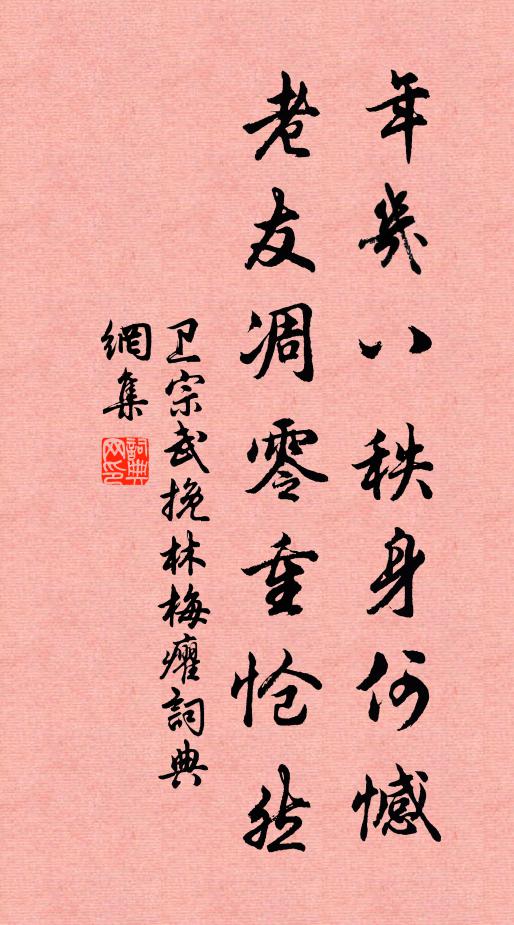 年幾八秩身何憾
老友凋零重怆然
卫宗武挽林梅癯詞典
網集
詞典
网印